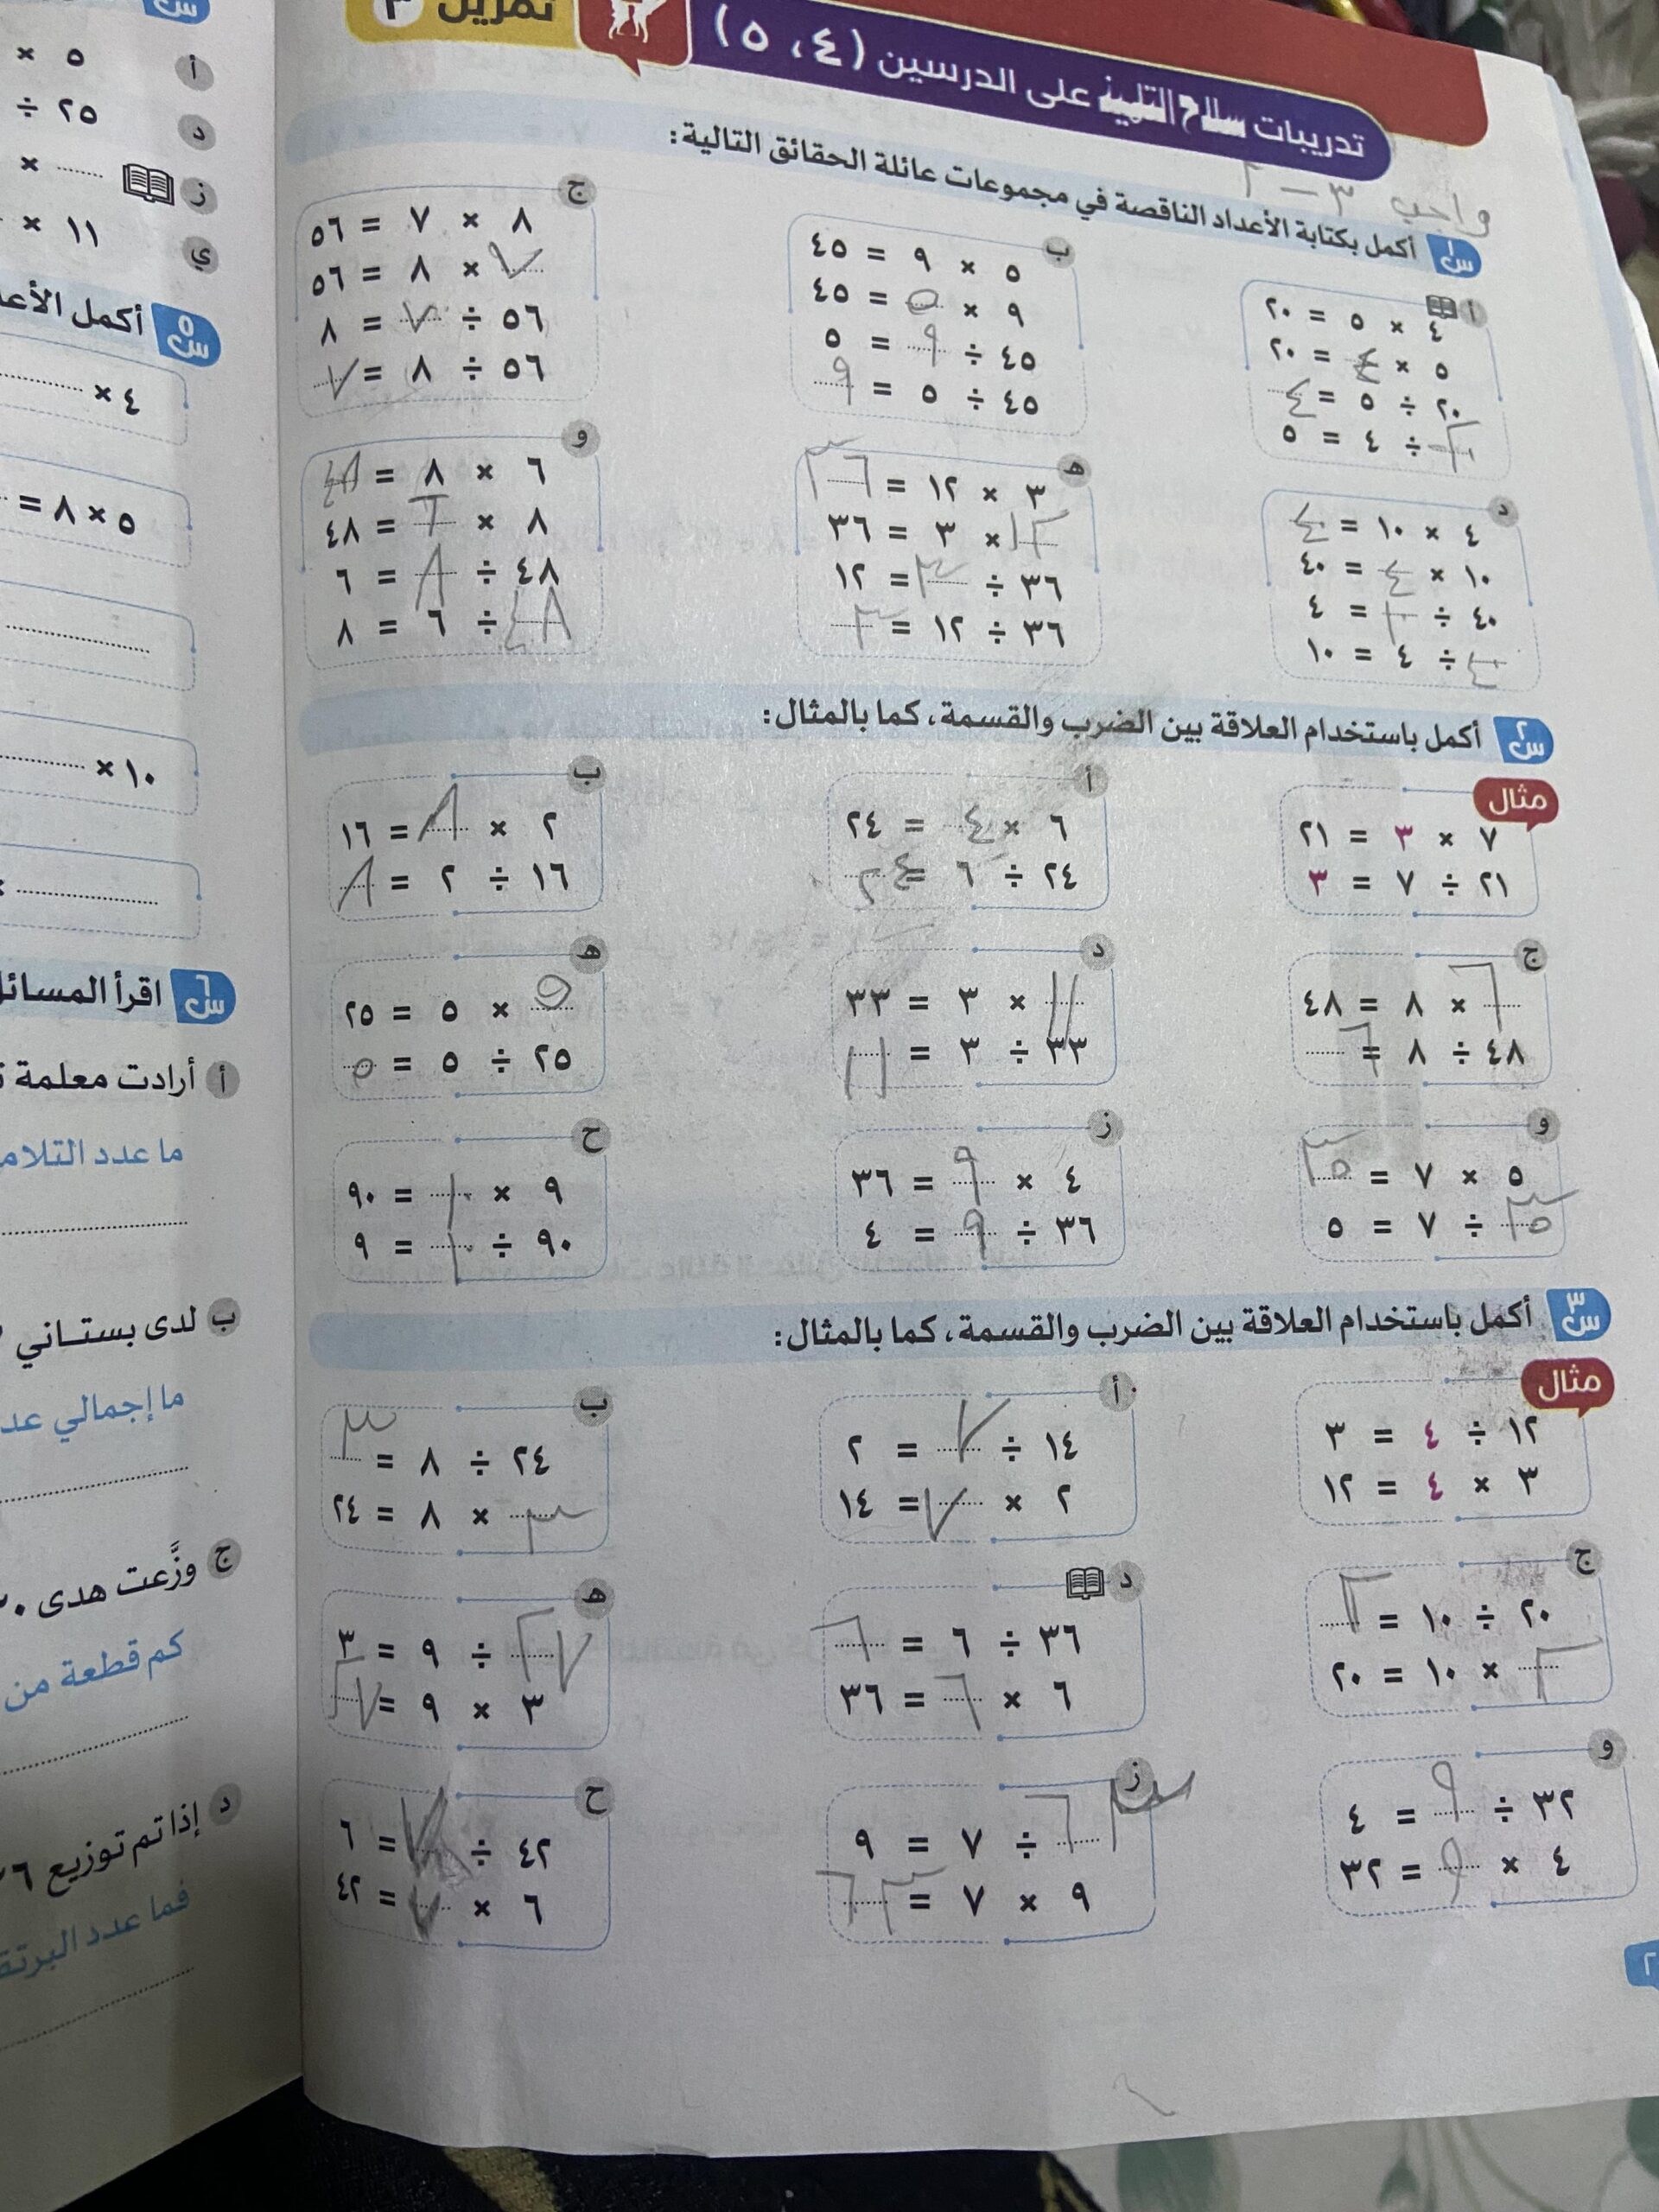 تمرين ٣
تدريبات سلاح التلميذ على الدرسين (٤، ٥)
واجب ٣ - ٢
س١ أكمل بكتابة الأعداد الناقصة في مجموعات عائلة الحقائق التالية:
أ
٤ × ٥ = ٢٠
٥ × ٤ = ٢٠
٢٠ ÷ ٥ = ٤
٢٠ ÷ ٤ = ٥
ب
٥ × ٩ = ٤٥
٩ × ٥ = ٤٥
٤٥ ÷ ٩ = ٥
٤٥ ÷ ٥ = ٩
ج
٨ × ٧ = ٥٦
٧ × ٨ = ٥٦
٥٦ ÷ ٧ = ٨
٥٦ ÷ ٨ = ٧
د
٤ × ١٠ = ٤٠
١٠ × ٤ = ٤٠
٤٠ ÷ ١٠ = ٤
٤٠ ÷ ٤ = ١٠
ه
٣ × ١٢ = ٣٦
١٢ × ٣ = ٣٦
٣٦ ÷ ٣ = ١٢
٣٦ ÷ ١٢ = ٣
و
٦ × ٨ = ٤٨
٨ × ٦ = ٤٨
٤٨ ÷ ٨ = ٦
٤٨ ÷ ٦ = ٨
س٢ أكمل باستخدام العلاقة بين الضرب والقسمة، كما بالمثال:
مثال
٧ × ٣ = ٢١
٢١ ÷ ٧ = ٣
أ
٦ × ٤ = ٢٤
٢٤ ÷ ٦ = ٤
ب
٢ × ٨ = ١٦
١٦ ÷ ٢ = ٨
ج
٦ × ٨ = ٤٨
٤٨ ÷ ٨ = ٦
د
١١ × ٣ = ٣٣
٣٣ ÷ ٣ = ١١
ه
٥ × ٥ = ٢٥
٢٥ ÷ ٥ = ٥
و
٥ × ٧ = ٣٥
٣٥ ÷ ٧ = ٥
ز
٤ × ٩ = ٣٦
٣٦ ÷ ٩ = ٤
ح
٩ × ١٠ = ٩٠
٩٠ ÷ ١٠ = ٩
س٣ أكمل باستخدام العلاقة بين الضرب والقسمة، كما بالمثال:
مثال
١٢ ÷ ٤ = ٣
٣ × ٤ = ١٢
أ
١٤ ÷ ٧ = ٢
٢ × ٧ = ١٤
ب
٢٤ ÷ ٨ = ٣
٣ × ٨ = ٢٤
ج
٢٠ ÷ ١٠ = ٢
٢ × ١٠ = ٢٠
د
٣٦ ÷ ٦ = ٦
٦ × ٦ = ٣٦
ه
٢٧ ÷ ٩ = ٣
٣ × ٩ = ٢٧
و
٣٢ ÷ ٩ = ٤
٤ × ٩ = ٣٢
ز
٦٣ ÷ ٧ = ٩
٩ × ٧ = ٦٣
ح
٤٢ ÷ ٧ = ٦
٦ × ٧ = ٤٢
أ ٥ ×
د ٢٥ ÷
ز ...... ×
ي ١١ ×
س٥ أكمل الأعد
٤ × ......
٥ × ٨ =
١٠ × ......
س٦ اقرأ المسائل
أ أرادت معلمة
ما عدد التلام
ب لدى بستاني
ما إجمالي عدد
ج وزَّعت هدى
كم قطعة من
د إذا تم توزيع
فما عدد البرتق